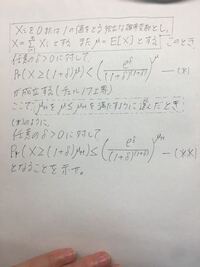 Xiを0または1の値をとる独立な確率変数とし、
X=Σ_{i=1}^{n} Xi とする また μ=E[X]とする このとき
任意のδ>0に対して
Pr(X≥(1+δ)μ)<(e^δ/(1+δ)^{(1+δ)})^μ —(*)
が成立する(チェルノフ上界)
ここで μ_H を μ≤μ_H を満たすように選んだとき
(*)のように、
任意のδ>0に対して
Pr(X≥(1+δ)μ_H)≤(e^δ/(1+δ)^{(1+δ)})^{μ_H} —(**)
となることを示す。